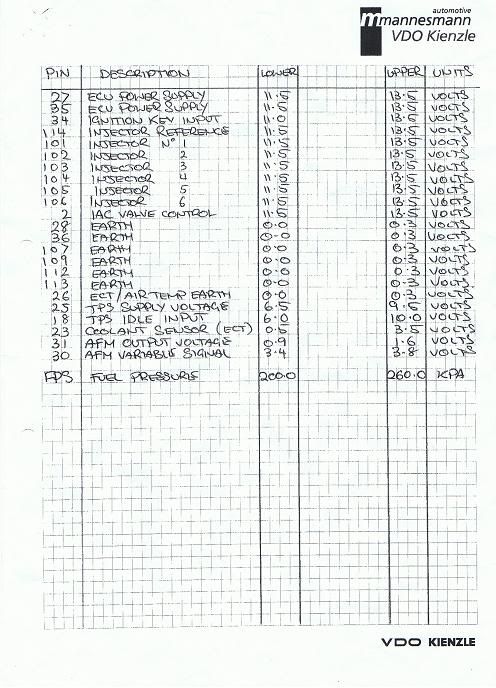 automotive
mannesmann
VDO Kienzle
PIN DESCRIPTION LOWER UPPER UNITS
27 ECU POWER SUPPLY 11.5 13.5 VOLTS
35 ECU POWER SUPPLY 11.5 13.5 VOLTS
34 IGNITION KEY INPUT 11.0 13.5 VOLTS
114 INJECTOR REFERENCE 11.5 13.5 VOLTS
101 INJECTOR Nº 1 11.5 13.5 VOLTS
102 INJECTOR 2 11.5 13.5 VOLTS
103 INJECTOR 3 11.5 13.5 VOLTS
104 INJECTOR 4 11.5 13.5 VOLTS
105 INJECTOR 5 11.5 13.5 VOLTS
106 INJECTOR 6 11.5 13.5 VOLTS
2 IAC VALVE CONTROL 11.5 13.5 VOLTS
28 EARTH 0.0 0.3 VOLTS
36 EARTH 0.0 0.3 VOLTS
107 EARTH 0.0 0.3 VOLTS
109 EARTH 0.0 0.3 VOLTS
112 EARTH 0.0 0.3 VOLTS
113 EARTH 0.0 0.3 VOLTS
26 ECT/AIR TEMP EARTH 0.0 0.3 VOLTS
25 TPS SUPPLY VOLTAGE 6.5 9.5 VOLTS
18 TPS IDLE INPUT 6.0 10.0 VOLTS
23 COOLANT SENSOR (ECT) 0.5 3.5 VOLTS
31 AFM OUTPUT VOLTAGE 0.9 1.6 VOLTS
30 AFM VARIABLE SIGNAL 3.4 3.8 VOLTS
FPS FUEL PRESSURE 200.0 260.0 KPA
VDO KIENZLE